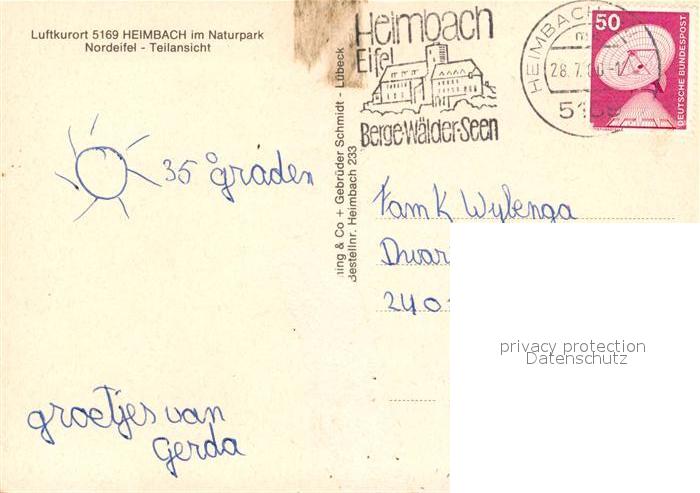 Luftkurort 5169 HEIMBACH im Naturpark
Nordeifel - Teilansicht
35 °graden
groetjes van
Gerda
ning & Co + Gebrüder Schmidt - Lübeck
Bestellnr. Heimbach 233
Heimbach
Eifel
Berge·Wälder·Seen
HEIMBACH
28.7.
50
DEUTSCHE BUNDESPOST
Fam K Wybenga
Dwar
240
privacy protection
Datenschutz